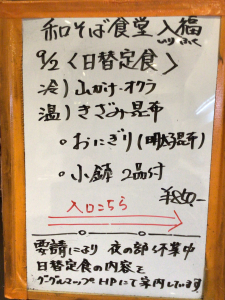 和そば食堂 入福
いり ふく
9/2〈日替定食〉
冷)山かけ・オクラ
温)きざみ昆布
・おにぎり(明太昆布)
・小鉢 2品付
¥850-
入口こちら
要請により 夜の部も休業中
日替定食の内容を
グーグルマップHPにて案内しています